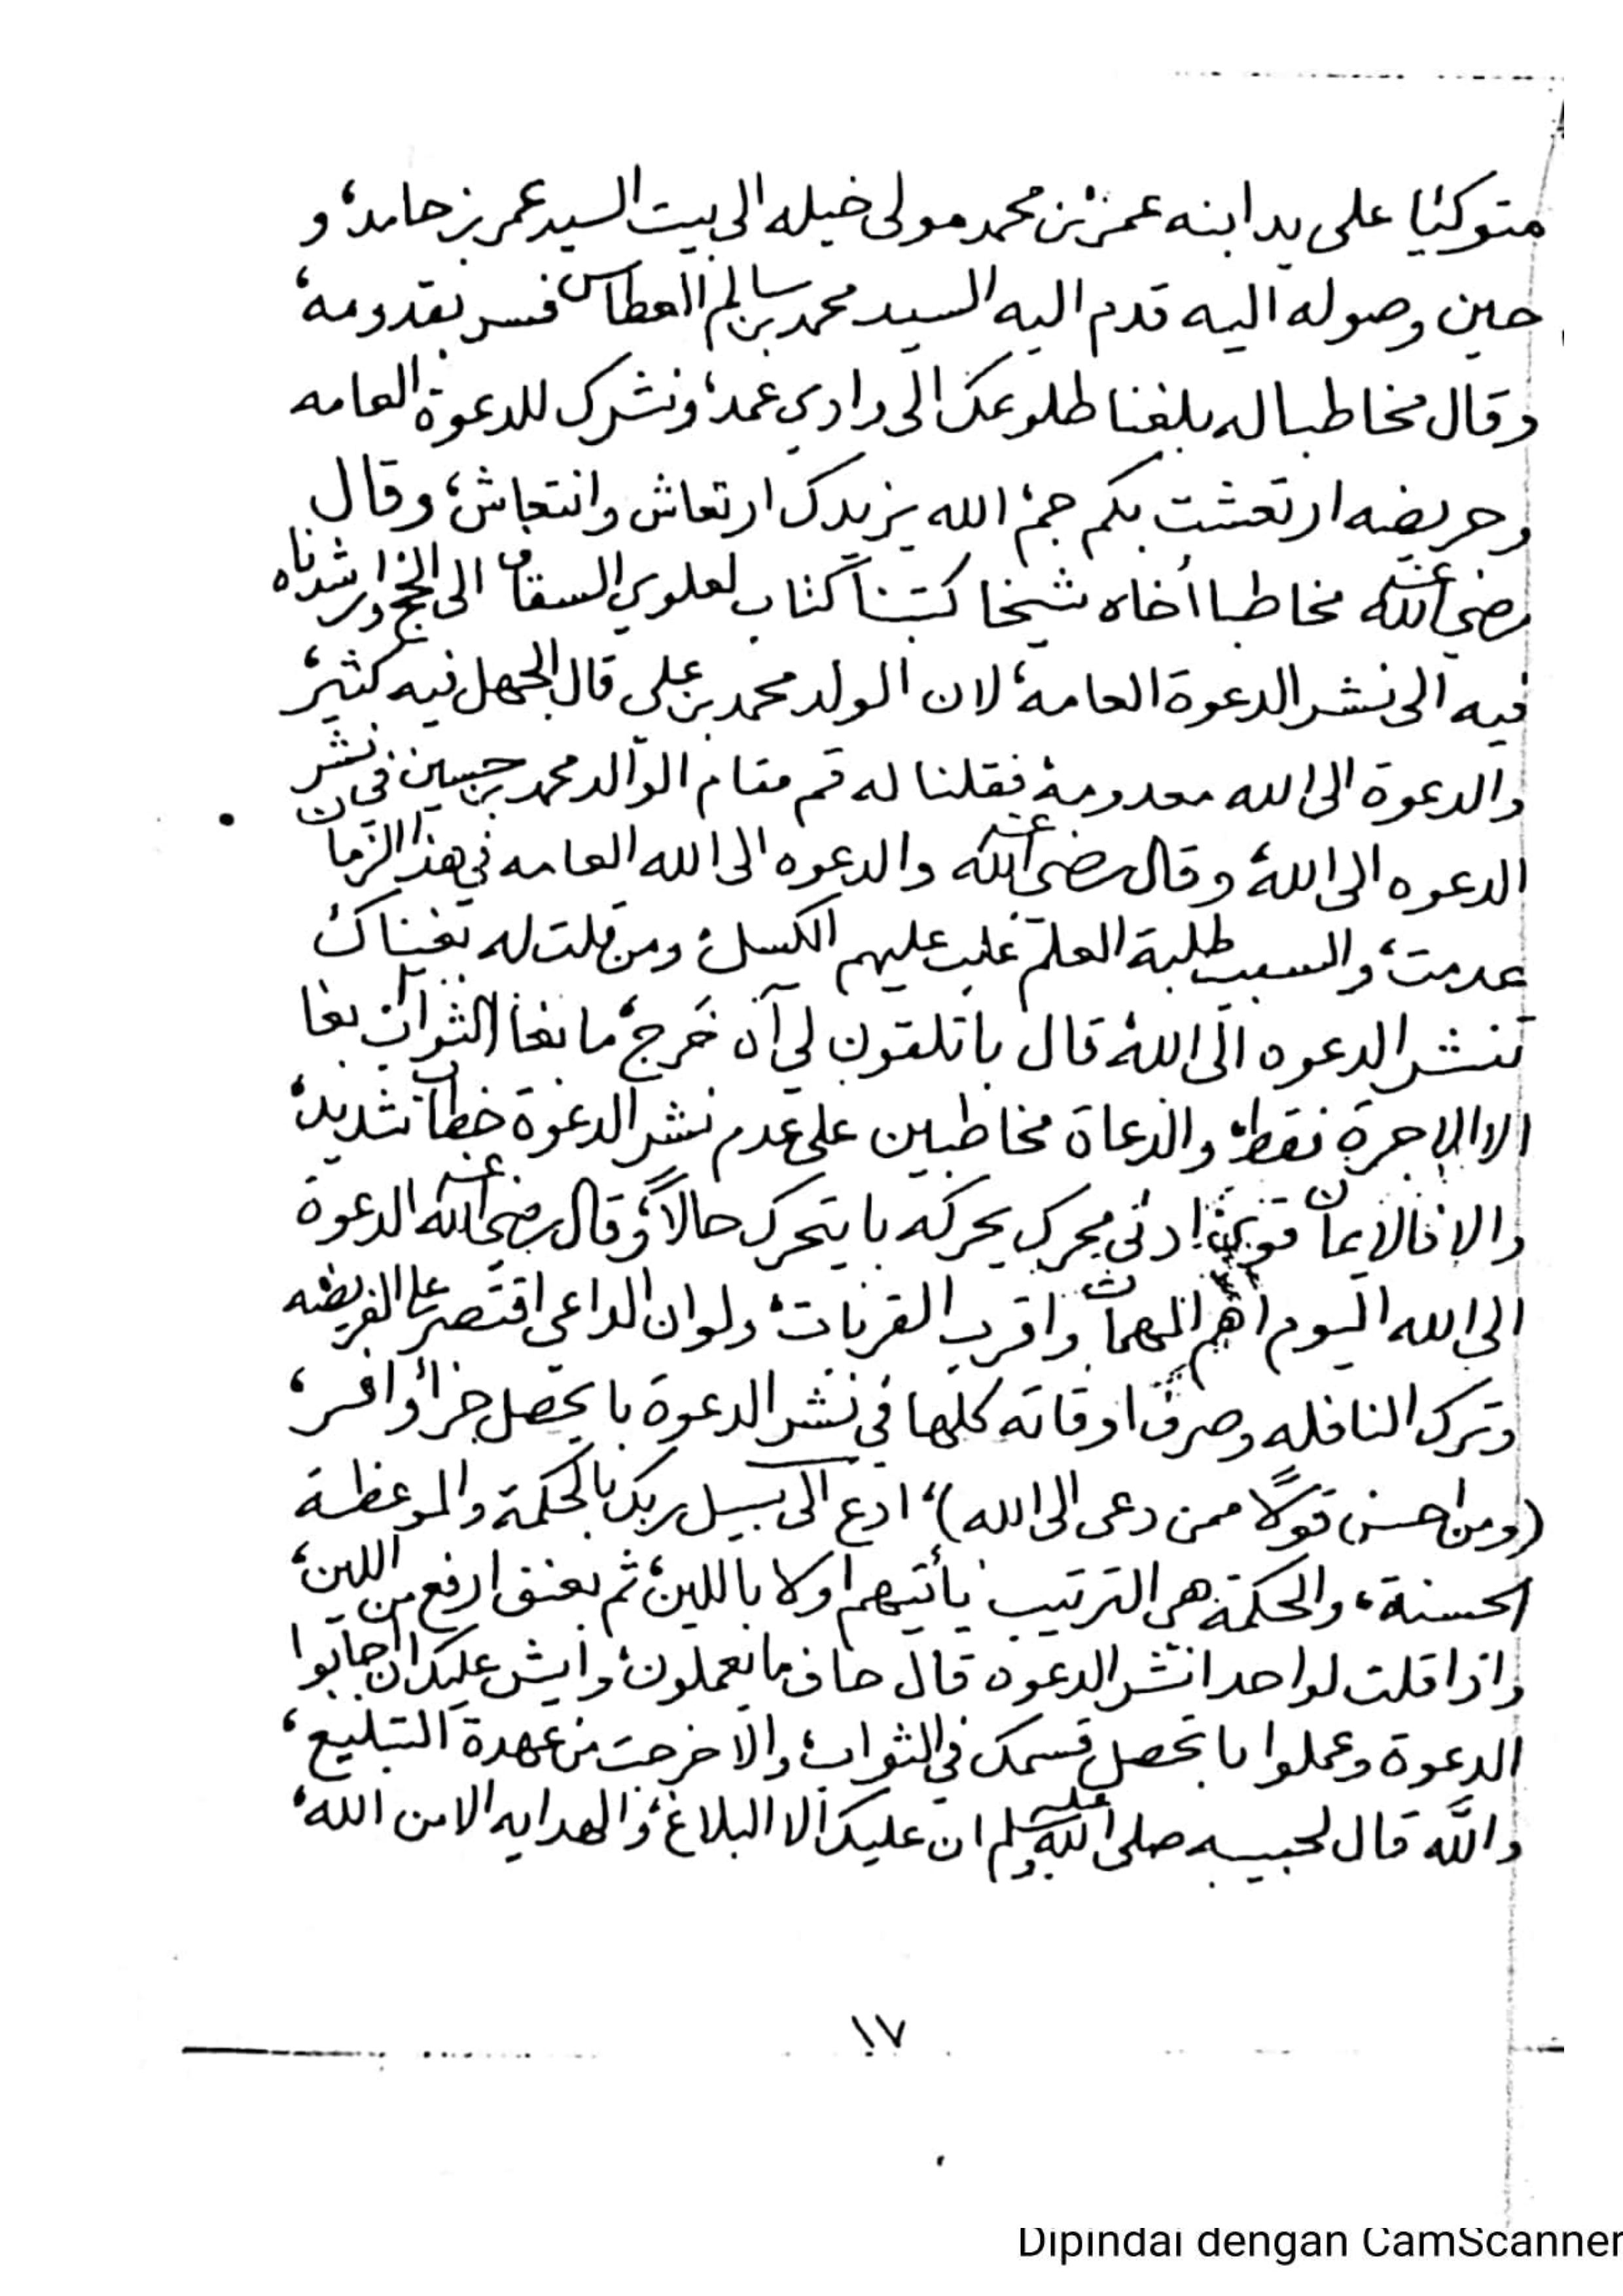 متوكئا على يد ابنه عمر بن محمد مولى خيله الى بيت السيد عمر بن حامد، و
حين وصوله اليه قدم اليه السيد محمد بن سالم العطاس فسر بقدومه،
وقال مخاطبا له بلغنا طلوعك الى وادي عمد، ونشرك للدعوة العامه
وحريضه ارتعشت بكم جم، الله يزيدك ارتعاش وانتعاش، وقال
رضي الله عنه مخاطبا أخاه شيخا كتبنا كتاب لعلوي السقاف الى وارشدناه
فيه الى نشر الدعوة العامة، لان الولد محمد بن علي قال الجهل فيه كثير،
والدعوة الى الله معدومة، فقلنا له قم مقام الوالد محمد بن حسين في نشر
الدعوه الى الله، وقال رضي الله عنه والدعوه الى الله العامه في هذا الزمان
عدمت، والسبب طلبة العلم غلب عليهم الكسل، ومن قلت له بغيناك
تنشر الدعوه الى الله، قال باتلقون لي آه خرج، ما بغا الثواب بغا
الا الإجرة فقط، والدعاة مخاطبين على عدم نشر الدعوة خطاب شديد،
والا فالايمان قوي ادنى محرك يحركه با يتحرك حالاً، وقال رضي الله عنه الدعوة
الى الله اليوم أهم المهمات واقرب القربات، ولو ان الداعي اقتصر على الفريضه
وترك النافله وصرف اوقاته كلها في نشر الدعوة با يحصل جزأ وافر،
(ومن احسن قولًا ممن دعى الى الله)، ادع الى سبيل ربك بالحكمة والموعظة
الحسنة، والحكمة هي الترتيب يأتيهم اولا باللين، ثم بعنق ارفع من اللين،
واذا قلت لواحد انشر الدعوه قال حاف ما يعملون، وأيش عليك ان جابوا
الدعوة وعملوا با تحصل قسمك في الثواب، والّا خرجت من عهدة التبليغ،
واللّه قال لحبيبه صلى الله عليه وسلم ان عليك الا البلاغ، والهدايه الا من الله،
١٧
Dipindai dengan CamScanner